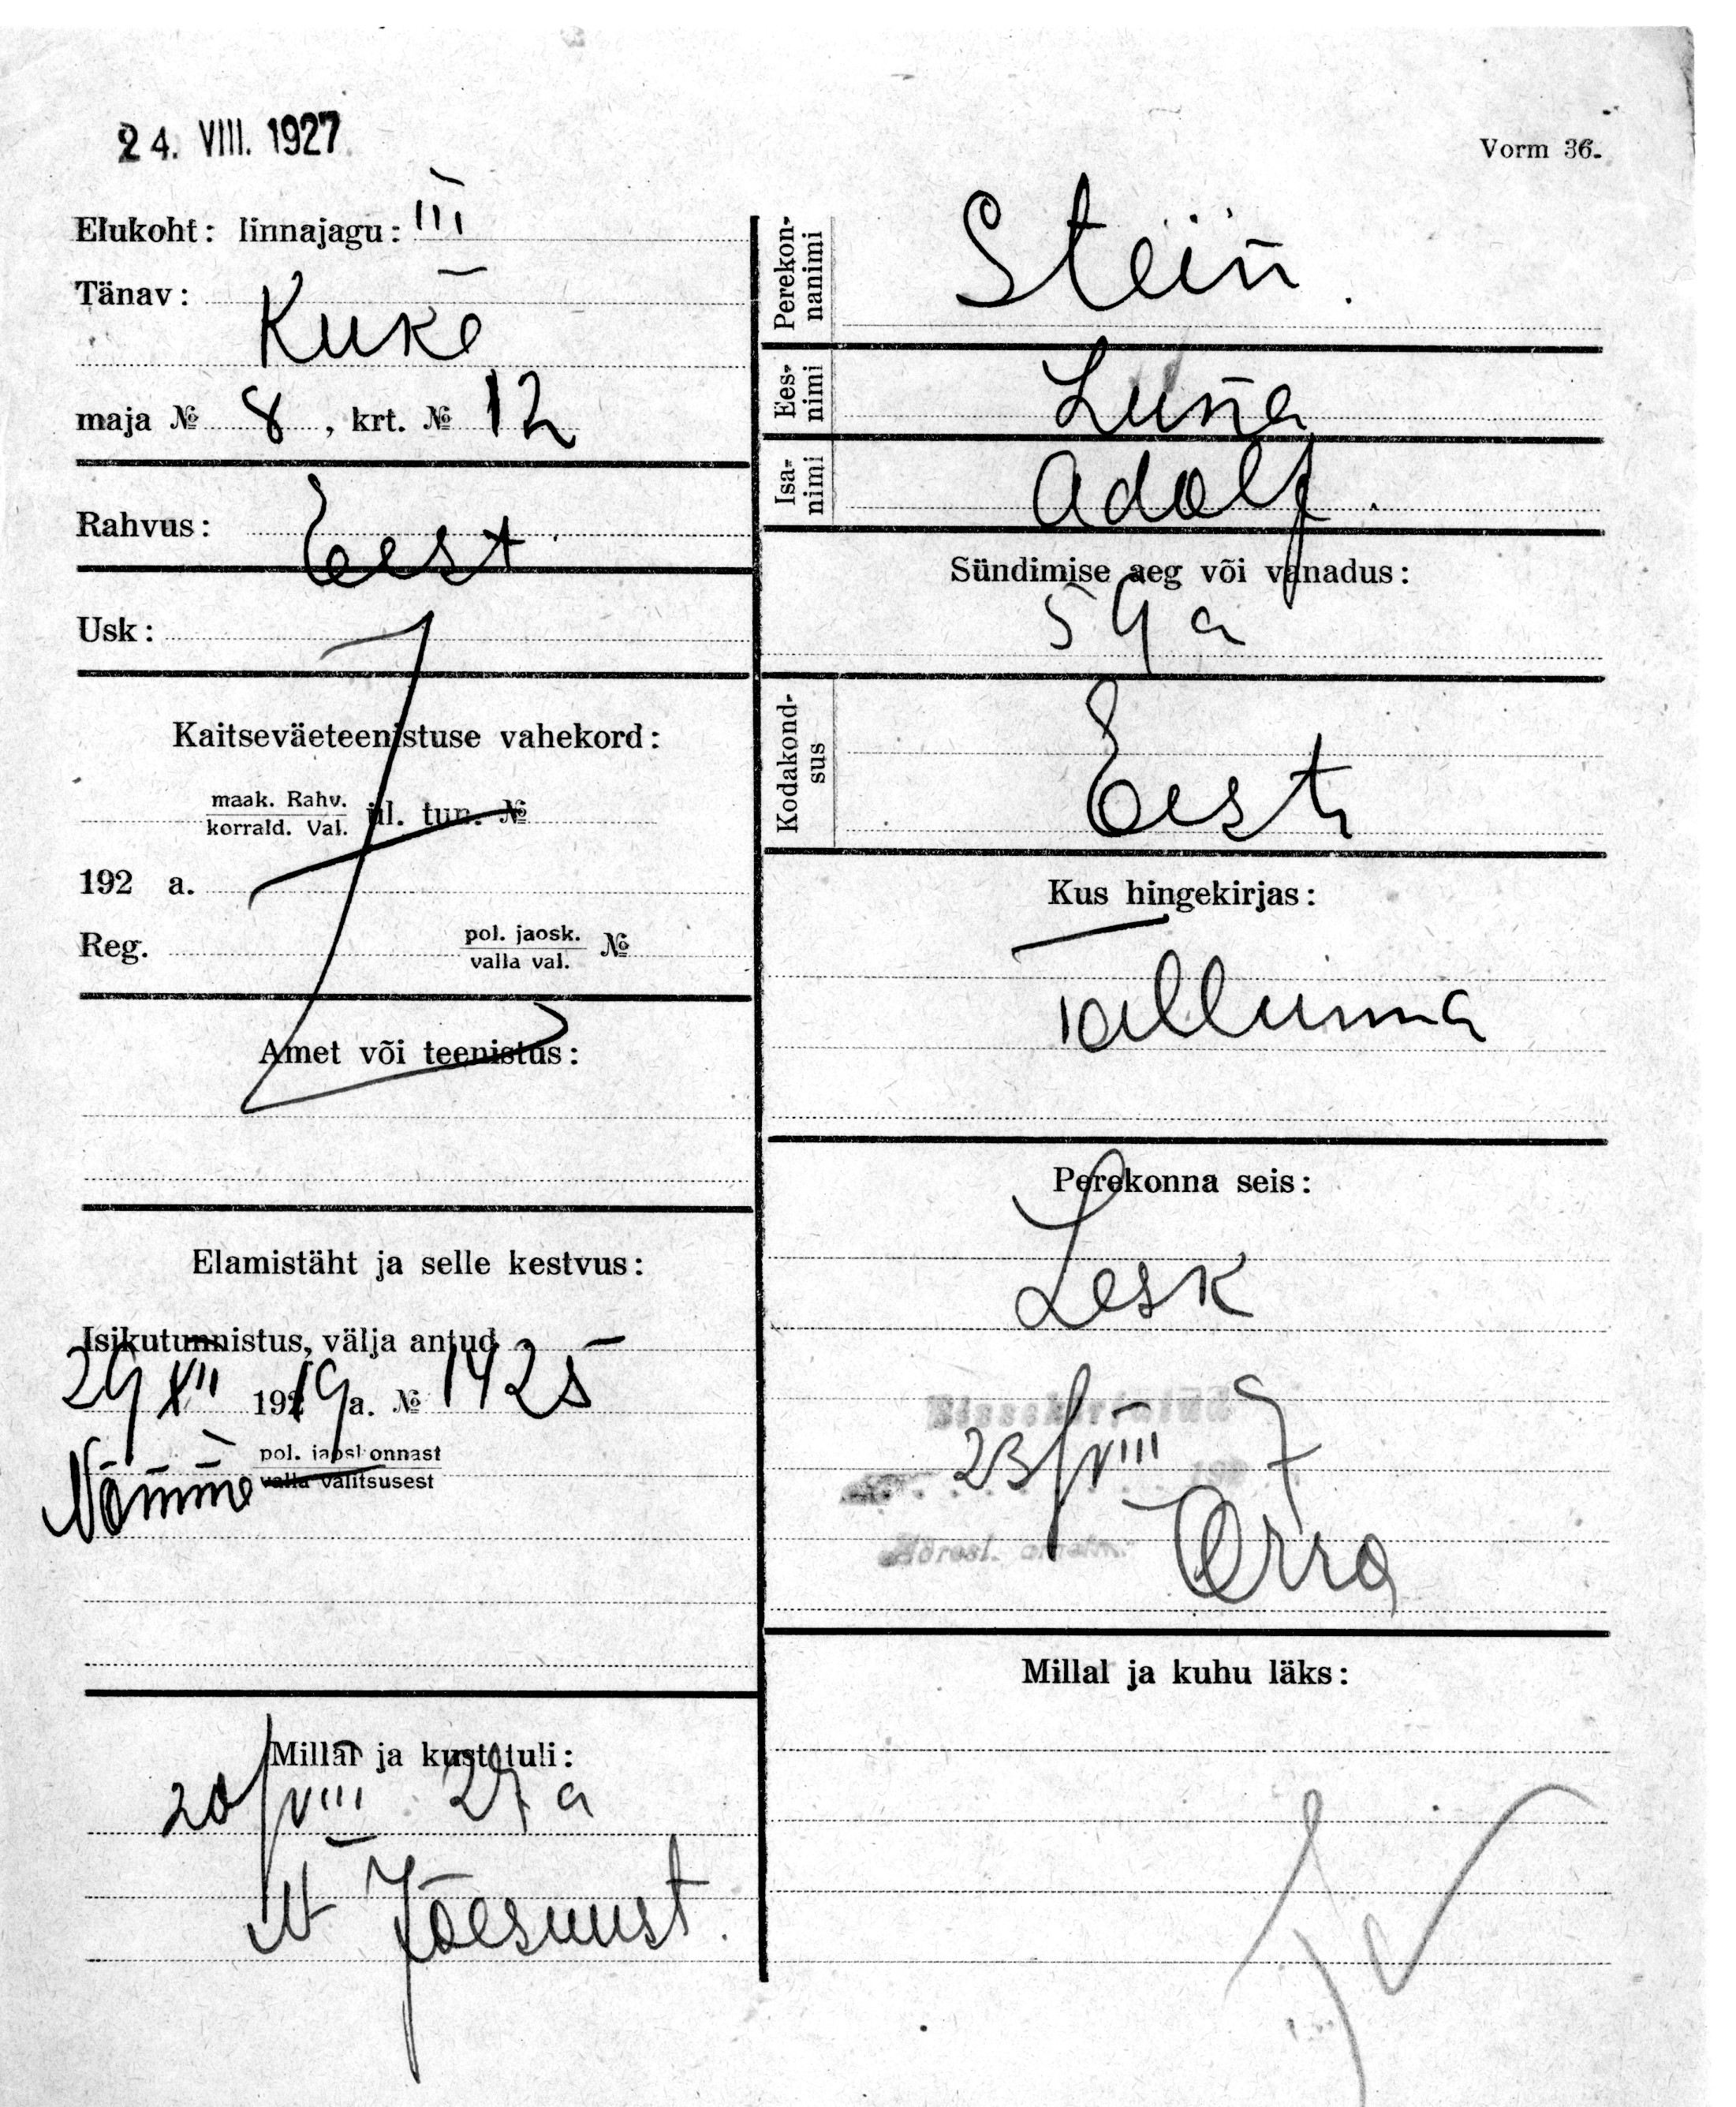 24. VIII. 1927
Vorm 36.
Elukoht: linnajagu: III
Tänav:
Kuke
maja № 8, krt. № 12
Rahvus: Eest
Usk:
Kaitseväeteenistuse vahekord:
maak. Rahv.
korrald. Val.
ül. tun. №
192 a.
Reg. pol. jaosk. №
valla val.
Amet või teenistus:
Elamistäht ja selle kestvus:
Isikutunnistus, välja antud
29 XII 19219 a. № 1425
Nõmme pol. jaoskonnast
valla valitsusest
Millal ja kust tuli:
20/VIII 27 a
N Jõesuust.
Perekonnanimi
Stein.
Eesnimi
Isanimi
Adolf.
Sündimise aeg või vanadus:
59 a
Kodakondsus
Eesti
Kus hingekirjas:
Tallinna
Perekonna seis:
Lesk
Sissekirjutud
23/VIII 192 7
Orro
Millal ja kuhu läks: